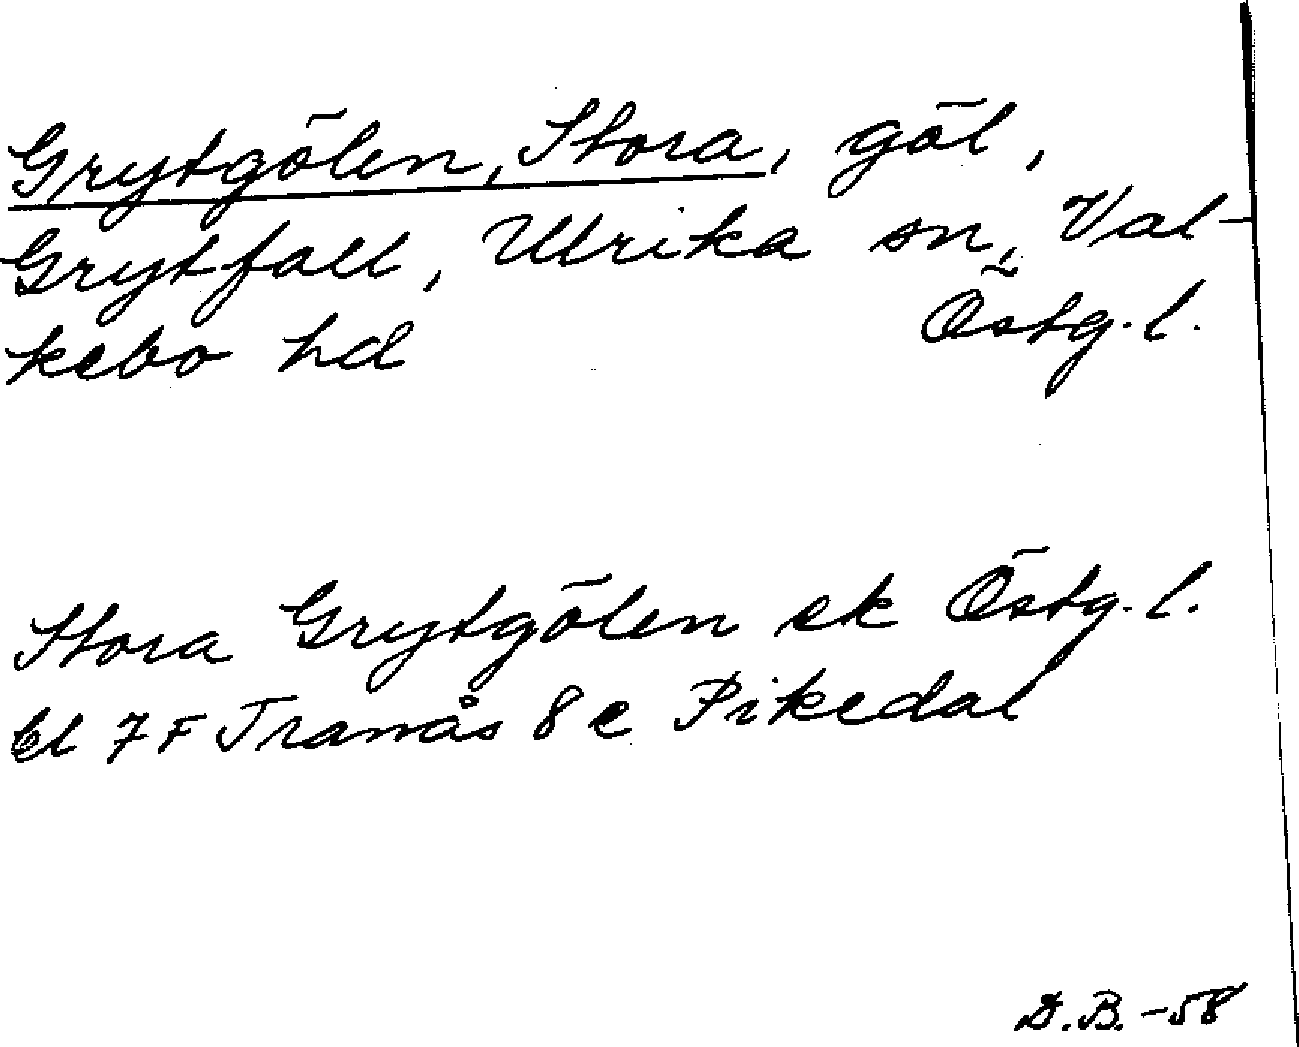 Grytgölen, Stora, göl,
Grytfall, Ulrika sn, Val-
kebo hd Östg. l.
Stora Grytgölen ek Östg. l.
bl 7 F Tranås 8 e Pikedal
D.B. -58